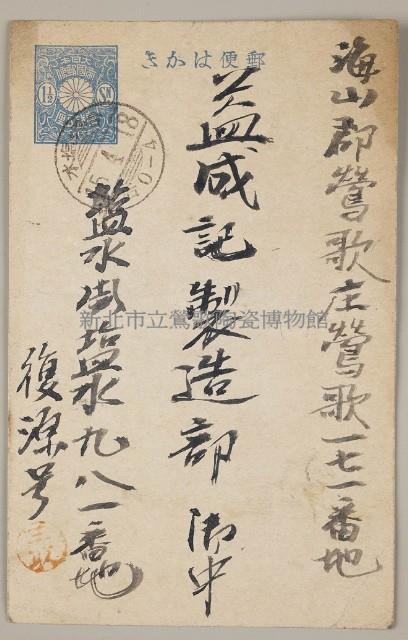 郵便はかき
1½ SN
海山郡鶯歌庄鶯歌一七一番地
益成記製造部 御中
鹽水街塩水九八一番地
復源号
新北市立鶯歌陶瓷博物館